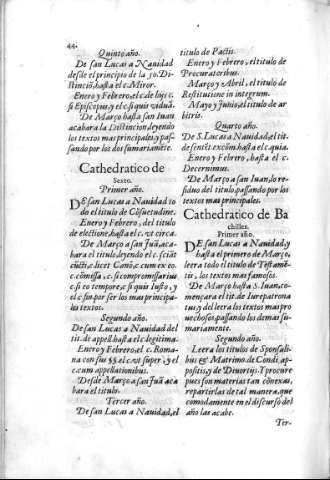 44.
Quinto año.
De san Lucas a Nauidad
desde el principio de la 50. Di-
stinciõ, hasta el c. Miror.
Enero y Febrero, el c. de
si Episcopus, y el c. si qua viduã.
De Março hasta san Iuan
acabara la Distincion, leyendo
los textos mas principales, y pas-
sando por los dos sumariamẽte.
Cathedratico de
Sexto.
Primer año.
DE san Lucas a Nauidad to
do el titulo de Cõsuetudine.
Enero y Febrero, del titulo
de electione, hasta el c. vt circa.
De Março a san Iuã, aca-
bara el titulo, leyendo el c. sciãt
cũcti, c. licet Canõ. c. cum ex eo.
c. cõmissa, c. si compromissarius
c. si eo tempore, c. si quis iusto, y
el c. si super los mas principa-
les textos.
Segundo año.
De san Lucas a Nauidad del
tit. de appell. hasta el c. legitima.
Enero y Febrero, el c. Roma-
na el c. vt super, y el
c. cum appellationibus.
Desde Março a san Iuã aca
bara el titulo.
Tercer año.
De san Lucas a Nauidad, el
titulo de Pactis.
Enero y Febrero, el titulo de
Procuratoribus.
Março y Abril, el titulo de
Restitutione in integrum.
Mayo y Junio, el titulo de ar
bitris.
Quarto año.
De S. Lucas a Nauidad, el tit.
de sentẽt. excõm. hasta el c. quia.
Enero y Febrero, hasta el c.
Decernimus.
De Março a san Iuan, lo re-
siduo del titulo, passando por los
textos mas principales.
Cathedratico de Ba
chiller.
Primer año.
DE san Lucas a Nauidad, y
hasta el primero de Março,
leera todo el titulo de Testamẽ-
tis, los textos mas famosos.
De Março hasta S. Iuan, co-
mençara el tit. de Iure patrona
tus, y del leera los textos mas pro
uechosos, passando los demas su-
mariamente.
Segundo año.
Leera los titulos de Sponsali-
bus & Matrimo. de Condi. ap-
positis, y de Diuortijs. Y procure
pues son materias tan cõnexas,
repartirlas de tal manera, que
comodamente en el discurso del
año las acabe.
Ter-